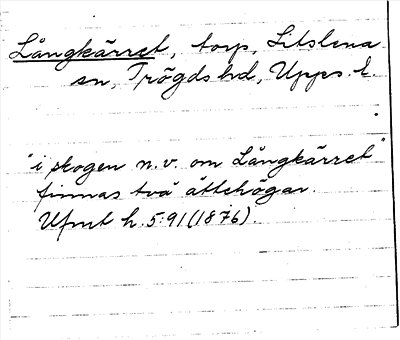 Långkärret, torp, Litslena
sn, Trögds hd, Upps. l.
"i skogen n.v. om Långkärret"
finnas två ättehögar.
Ufmt h. 5:91 (1876).